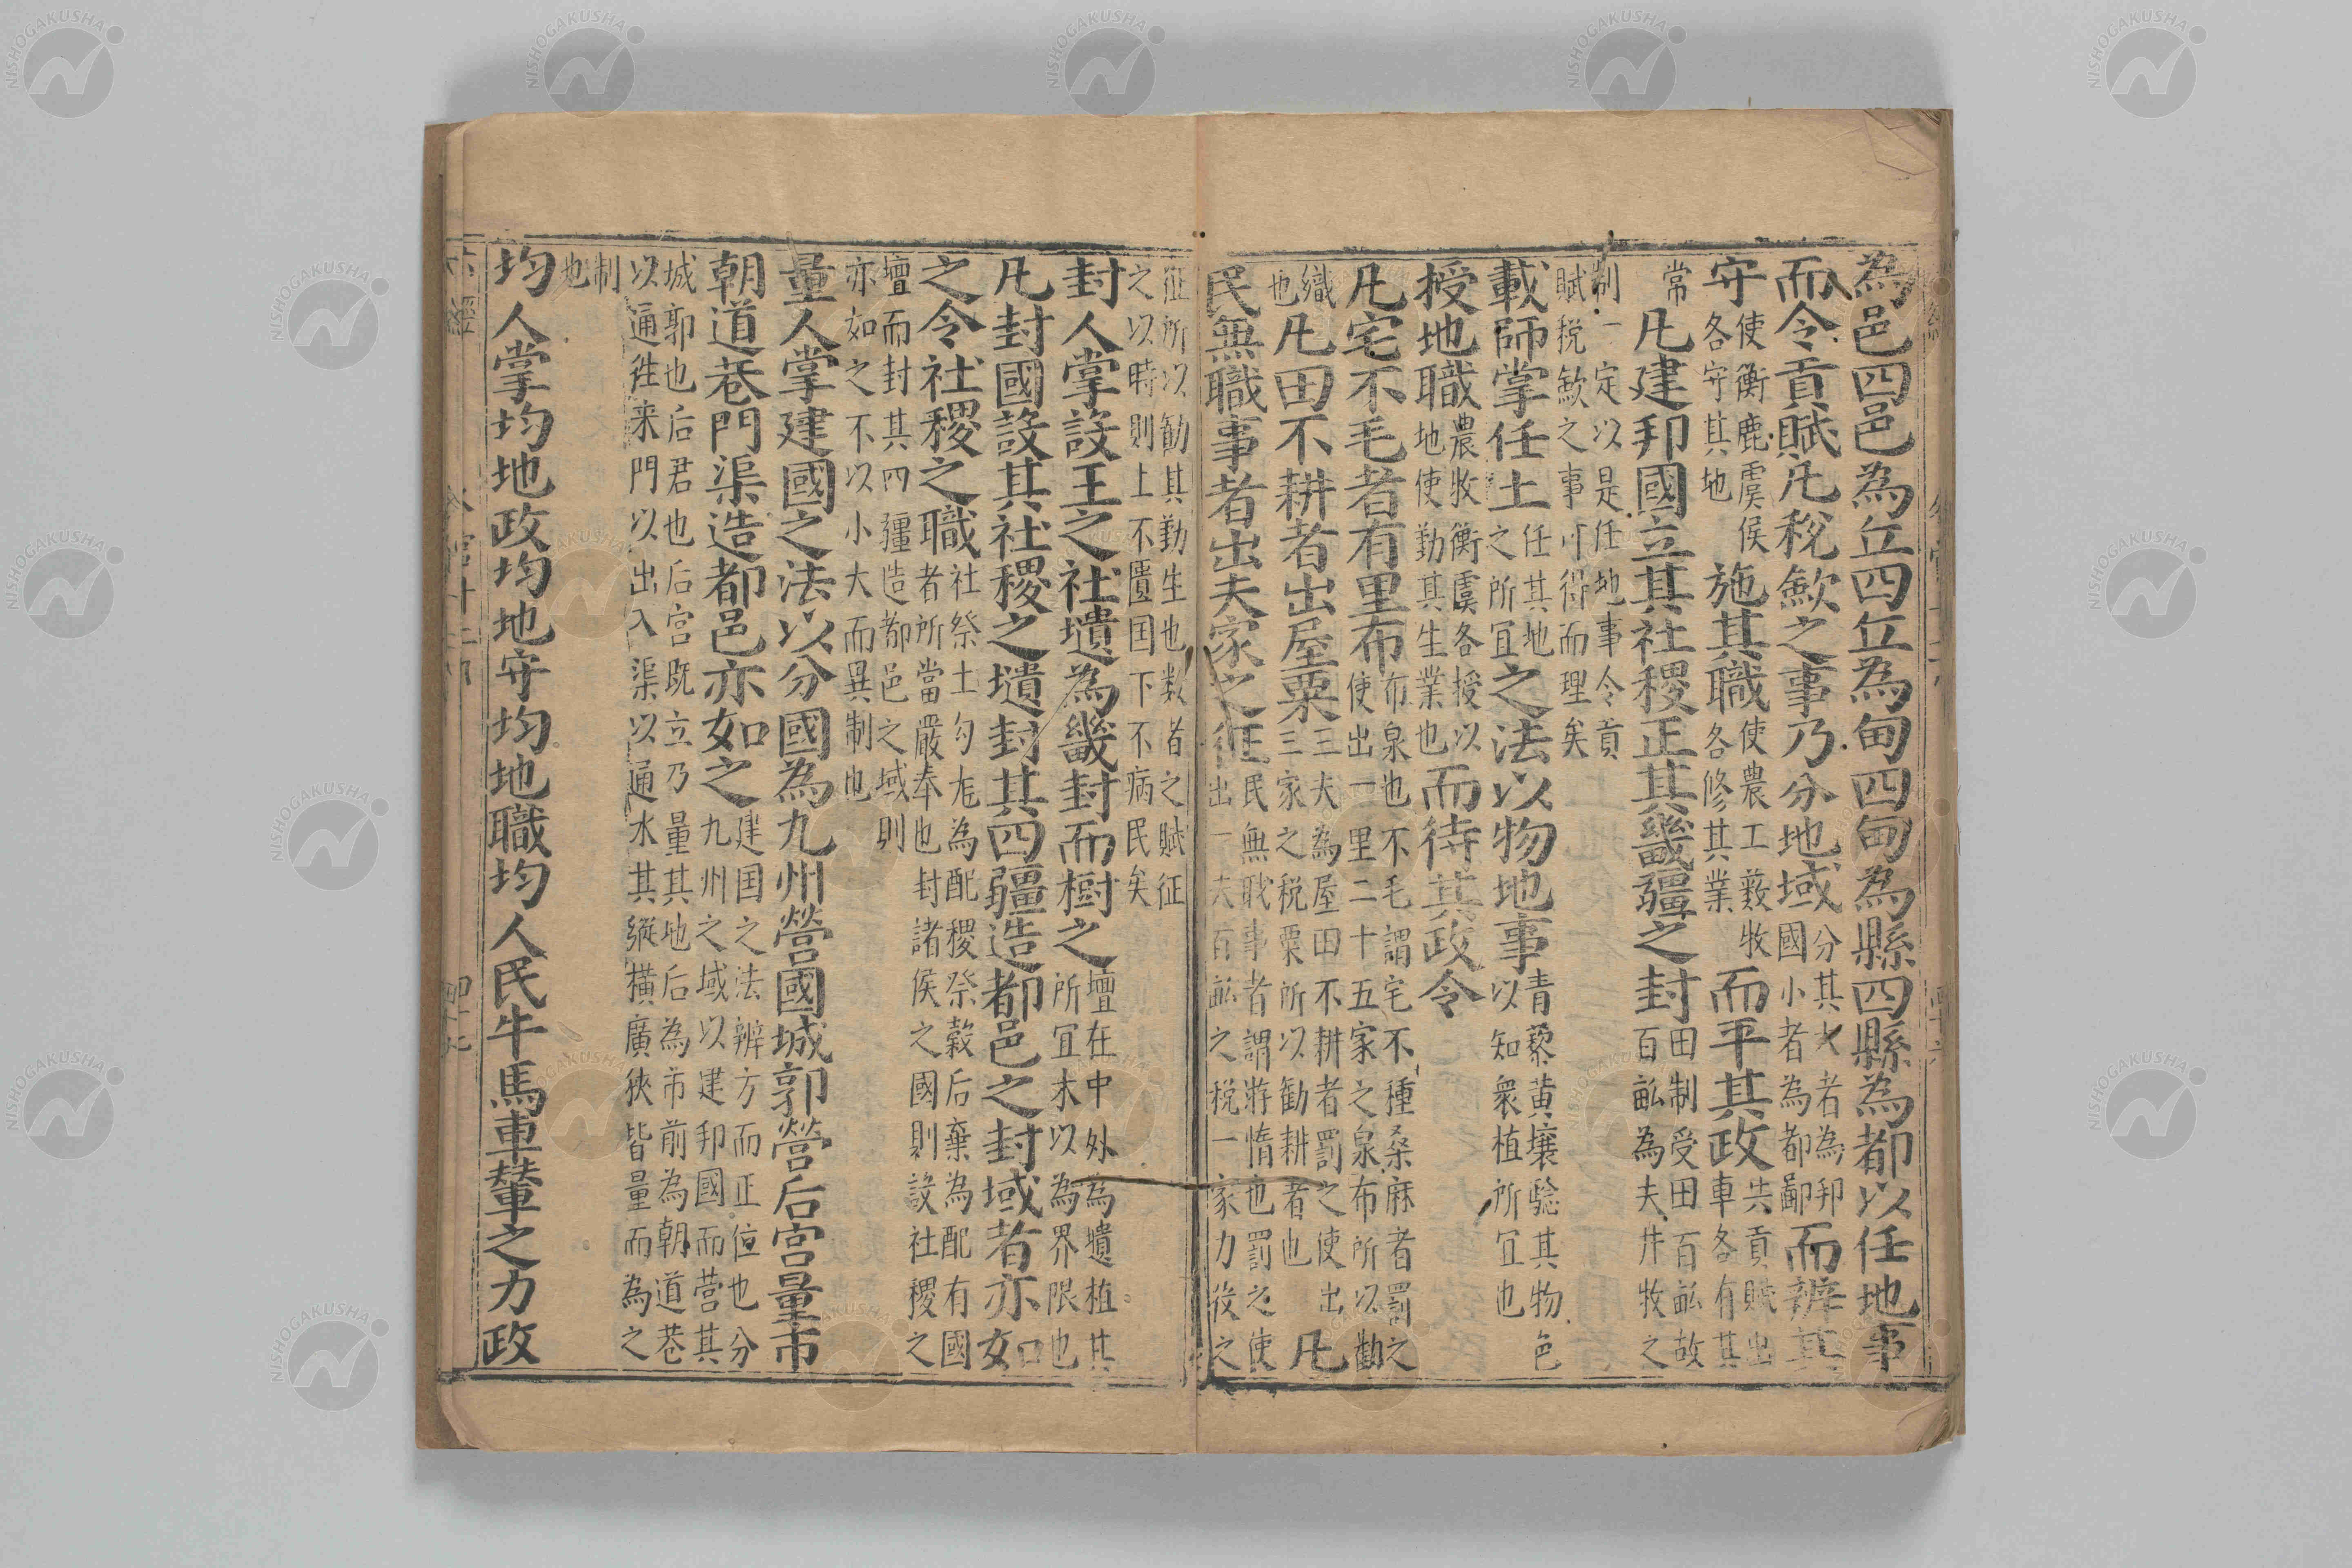 為邑四邑為丘四丘為甸四甸為縣四縣為都以任地事
而令貢賦凡稅歛之事乃分地域分其大者為邦國小者為都鄙而辨其
守使衡鹿虞侯各守其地施其職使農工藪牧各修其業而平其政共貢賦出車各有其
常凡建邦國立其社稷正其畿疆之封田制受田百畝故百畝為夫井牧之
制一定以是任地事令貢賦税歛之事可得而理矣
載師掌任土任其地之所宜之法以物地事青藜黄壤驗其物色以知衆植所宜也
授地職農牧衡虞各授以地使勤其生業也而待其政令
凡宅不毛者有里布布泉也不毛謂宅不種桑麻者罰之使出一里二十五家之泉布所以勸
織也凡田不耕者出屋粟三夫為屋田不耕者罰之使出三家之税粟所以勸耕者也凡
民無職事者出夫家之征民無職事者謂游惰也罰之使出一夫百畝之税一家力役之
征所以勸其勤生也数者之賦征之以時則上不匱囯下不病民矣
封人掌設王之社壝為畿封而樹之壇在中外為壝植其所宜木以為界限也
凡封國設其社稷之壝封其四疆造都邑之封域者亦如
之令社稷之職社祭土勾尨為配稷祭穀后棄為配有國者所當嚴奉也封諸侯之國則設社稷之
壇而封其四疆造都邑之域則亦如之不以小大而異制也
量人掌建國之法以分國為九州營國城郭營后宮量市
朝道巷門渠造都邑亦如之建囯之法辨方而正位也分九州之域以建邦國而营其
城郭也后君也后宮既立乃量其地后為市前為朝道巷以通徃来門以出入渠以通水其縱橫廣狹皆量而為之
制也
均人掌均地政均地守均地職均人民牛馬車輦之力政
六經